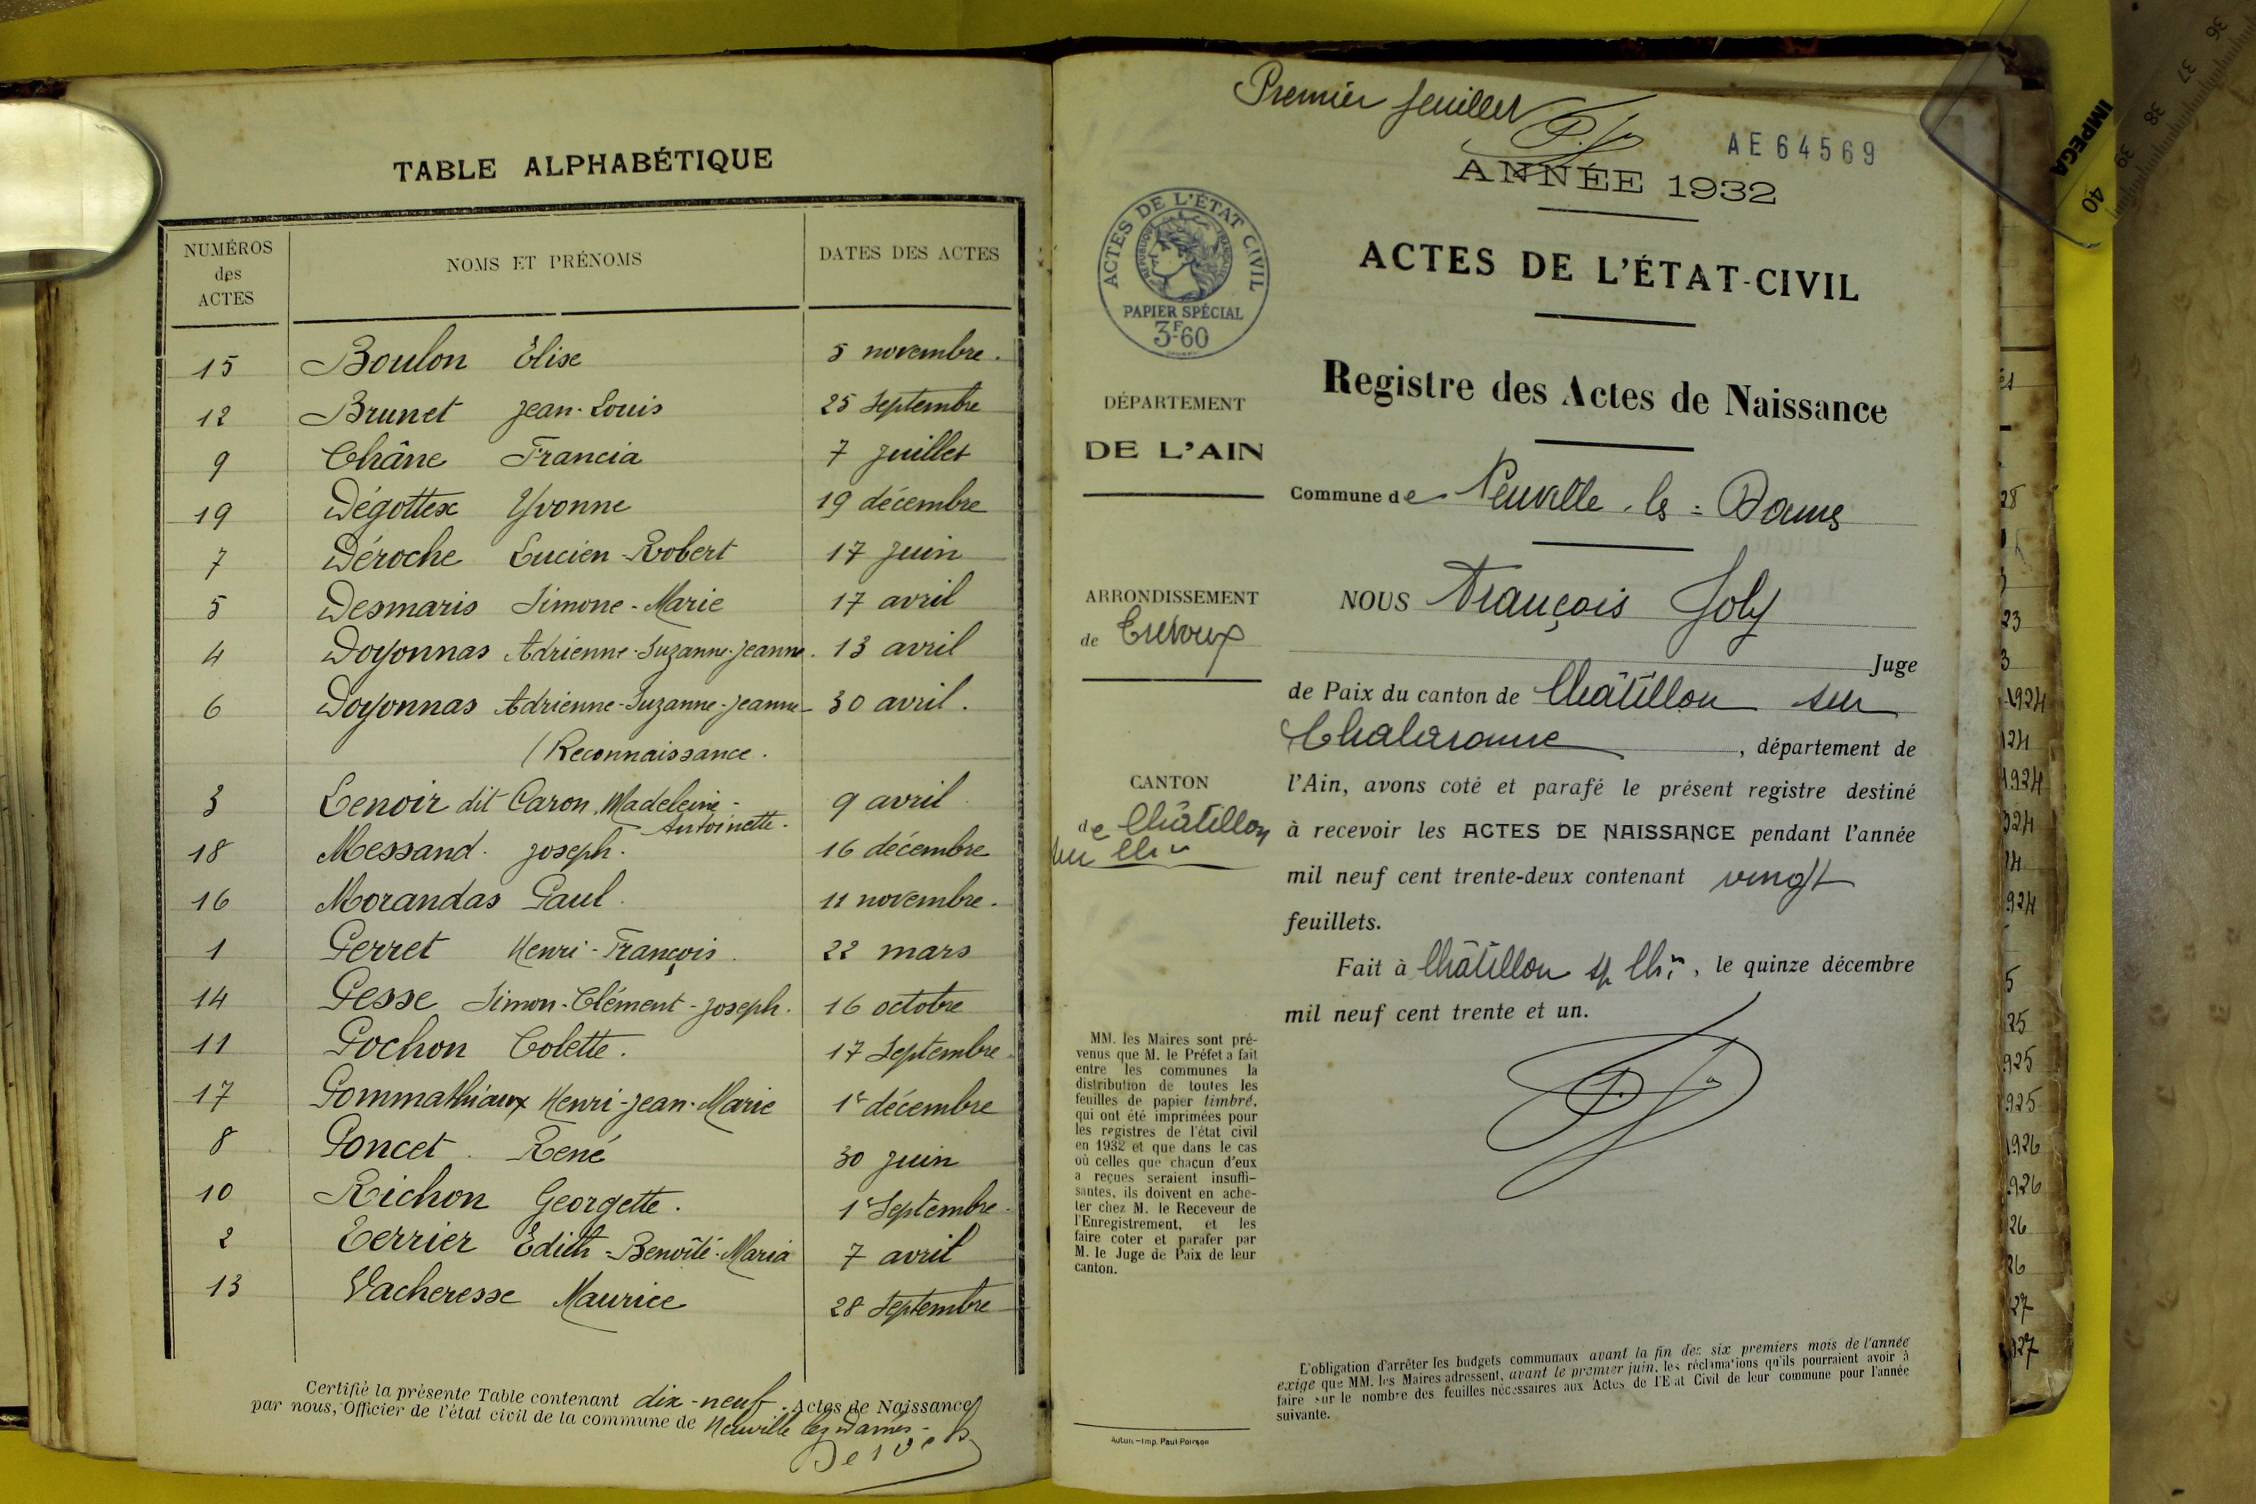 TABLE ALPHABÉTIQUE
NUMÉROS des ACTES NOMS ET PRÉNOMS DATES DES ACTES
15 Boulon Élise 5 novembre.
12 Brunet Jean-Louis 25 Septembre
9 Châne Francia 7 Juillet
19 Dégottex Yvonne 19 décembre
7 Déroche Lucien-Robert 17 Juin
5 Desmaris Simone-Marie 17 avril
4 Doyonnas Adrienne-Suzanne-Jeanne. 13 avril
6 Doyonnas Adrienne-Suzanne-Jeanne 30 avril.
(Reconnaissance.
3 Lenoir dit Caron Madeleine- 9 avril
Antoinette.
18 Messand. Joseph. 16 décembre
16 Morandas Paul. 11 novembre.
1 Perret Henri-François. 22 mars
14 Pesse Simon-Clément-Joseph. 16 octobre
11 Pochon Colette. 17 Septembre
17 Pommathiaux Henri-Jean-Marie 1er décembre
8 Poncet. René 30 juin
10 Richon Georgette. 1er Septembre
2 Terrier Édith-Benoîté-Maria 7 avril
13 Vacheresse Maurice 28 Septembre
Certifié la présente Table contenant dix-neuf Actes de Naissance
par nous, Officier de l'état civil de la commune de Neuville les Dames.
Premier feuillet
AE 64569
ANNÉE 1932
ACTES DE L'ÉTAT CIVIL
RÉPUBLIQUE FRANÇAISE
PAPIER SPÉCIAL
3F60
ACTES DE L'ÉTAT-CIVIL
Registre des Actes de Naissance
DÉPARTEMENT
DE L'AIN
Commune de Neuville-les=Dames
ARRONDISSEMENT
de Trévoux
CANTON
de Châtillon
sur Chne
NOUS François Joly
Juge
de Paix du canton de Châtillon sur
Chalaronne, département de
l'Ain, avons coté et parafé le présent registre destiné
à recevoir les ACTES DE NAISSANCE pendant l'année
mil neuf cent trente-deux contenant vingt
feuillets.
Fait à Châtillon s/ Chne, le quinze décembre
mil neuf cent trente et un.
MM. les Maires sont pré-
venus que M. le Préfet a fait
entre les communes la
distribution de toutes les
feuilles de papier timbré,
qui ont été imprimées pour
les registres de l'état civil
en 1932 et que dans le cas
où celles que chacun d'eux
a reçues seraient insuffi-
santes, ils doivent en ache-
ter chez M. le Receveur de
l'Enregistrement, et les
faire coter et parafer par
M. le Juge de Paix de leur
canton.
Autun.—Imp. Paul Poirson
L'obligation d'arrêter les budgets communaux avant la fin des six premiers mois de l'année
exige que MM. les Maires adressent, avant le premier juin, les réclamations qu'ils pourraient avoir à
faire sur le nombre des feuilles nécessaires aux Actes de l'État Civil de leur commune pour l'année
suivante.
IMPEGA
36
37
38
39
40
28
23
3
1924
1924
924
5
25
925
925
1926
926
26
26
27
927